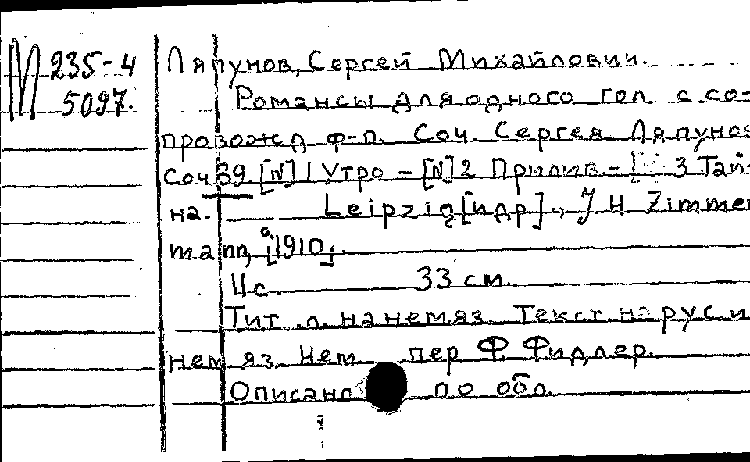 М 235-4
5097.
Ляпунов, Сергей Михайлович.
Романсы для одного гол. с со-
провожд ф-п. Соч. Сергея Ляпунов
Соч 39 [N] 1 Утро - [N] 2 Прилив. - 3 Тай-
на. Leipzig [и др]., J H Zimmer
mann, [1910].
4 с. 33 см.
Тит. л. на нем яз. Текст на рус и
нем яз. Нем пер Ф Фидлер.
Описано по обл.